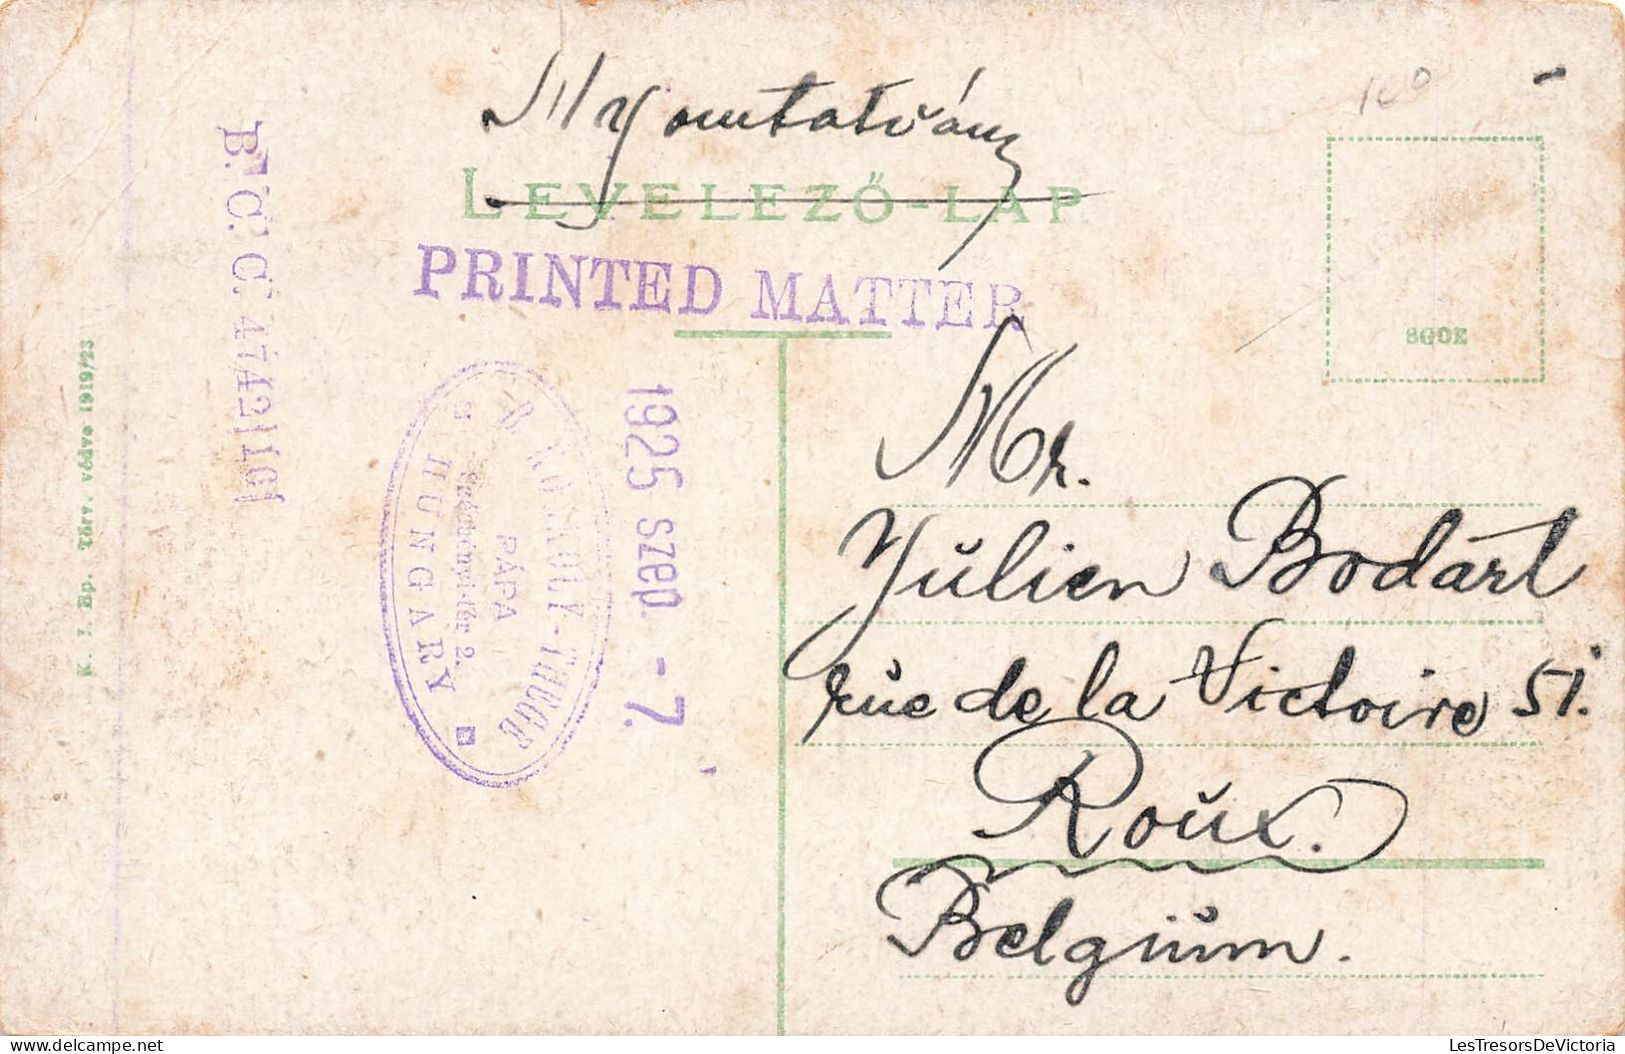 100
Nyomtatvány
LEVELEZŐ-LAP
PRINTED MATTER
SGOE
K. J. Bp. Törv. védve 1919/23
B. C. C. 4742
PÁPA
Széchenyi-tér 2.
HUNGARY
1925 szep. - 7.
Mr.
Julien Bodart
rue de la Victoire 51.
Roux.
Belgium.
LesTresorsDeVictoria